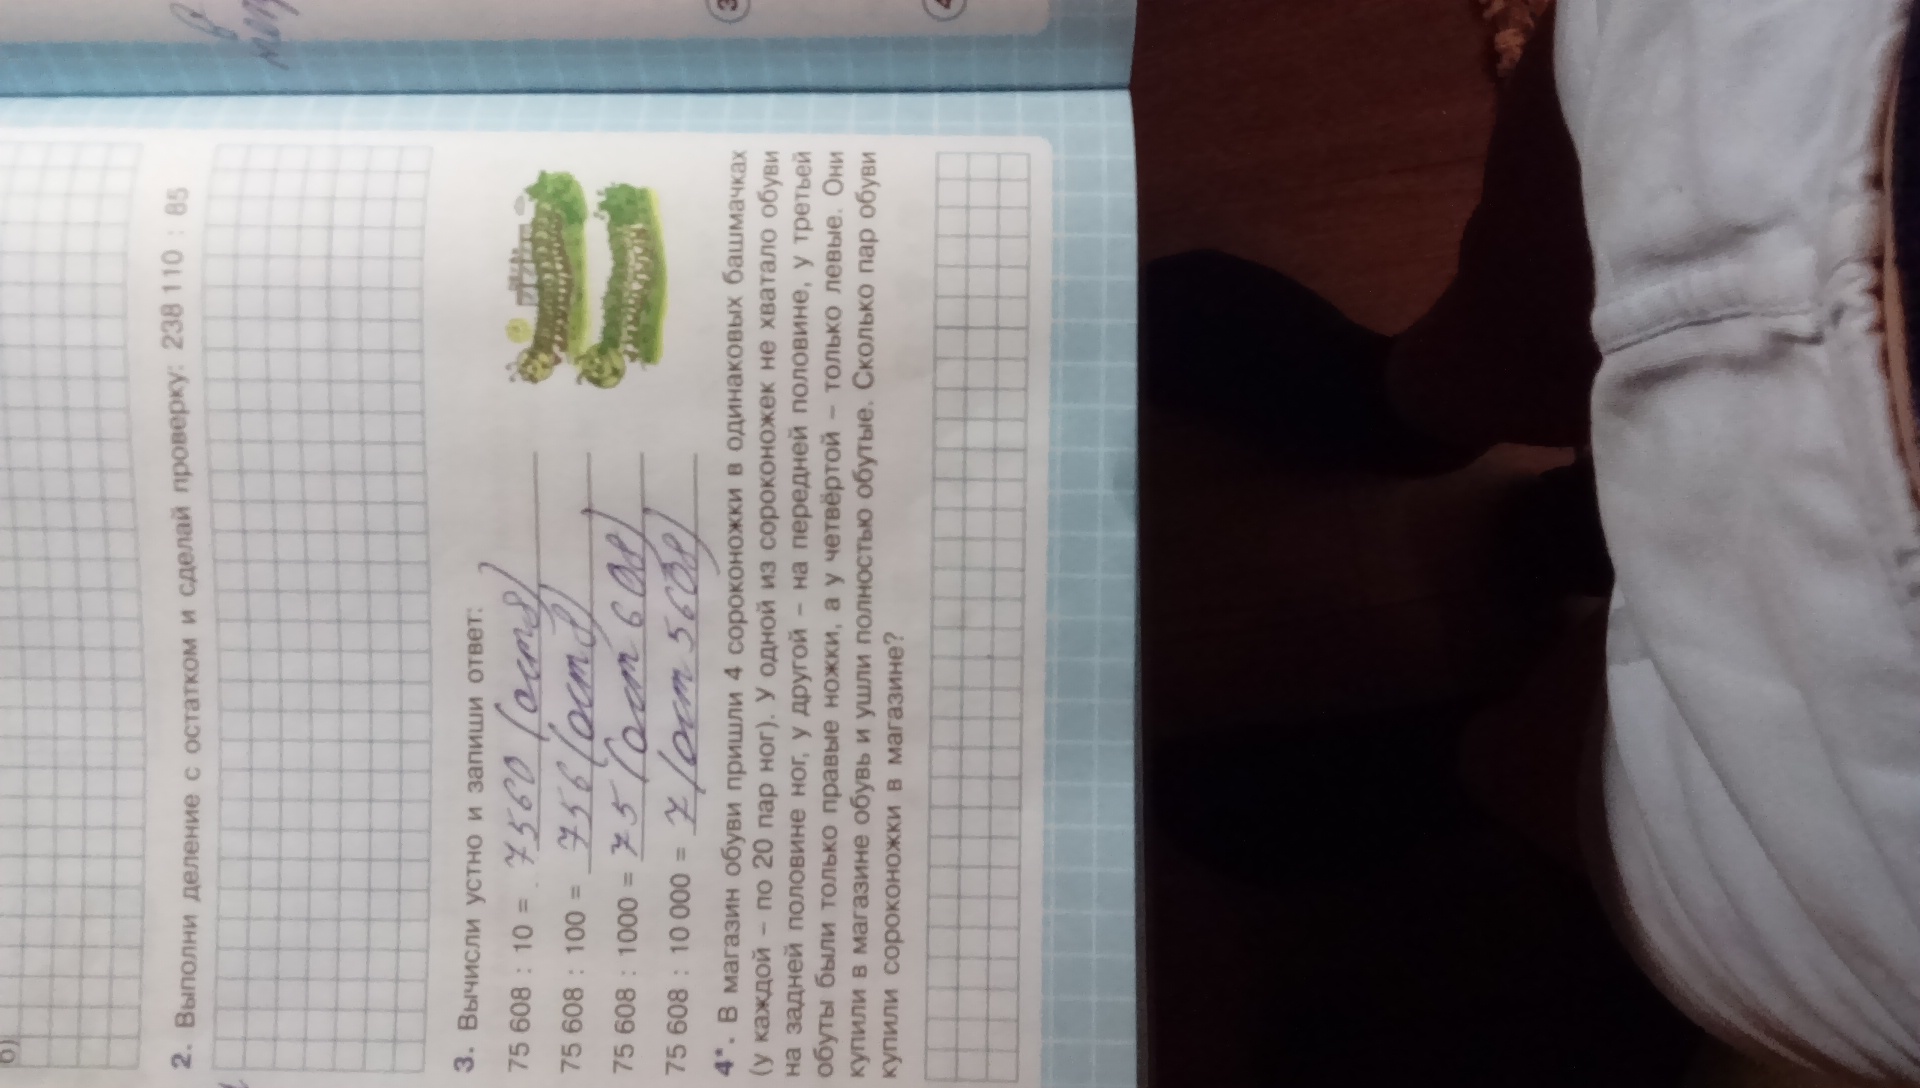 б)
2. Выполни деление с остатком и сделай проверку: 238 110 : 85
3. Вычисли устно и запиши ответ:
75 608 : 10 = 7560 (ост 8)
75 608 : 100 = 756 (ост 8)
75 608 : 1000 = 75 (ост 608)
75 608 : 10 000 = 7 (ост 5608)
4*. В магазин обуви пришли 4 сороконожки в одинаковых башмачках
(у каждой – по 20 пар ног). У одной из сороконожек не хватало обуви
на задней половине ног, у другой – на передней половине, у третьей
обуты были только правые ножки, а у четвёртой – только левые. Они
купили в магазине обувь и ушли полностью обутые. Сколько пар обуви
купили сороконожки в магазине?